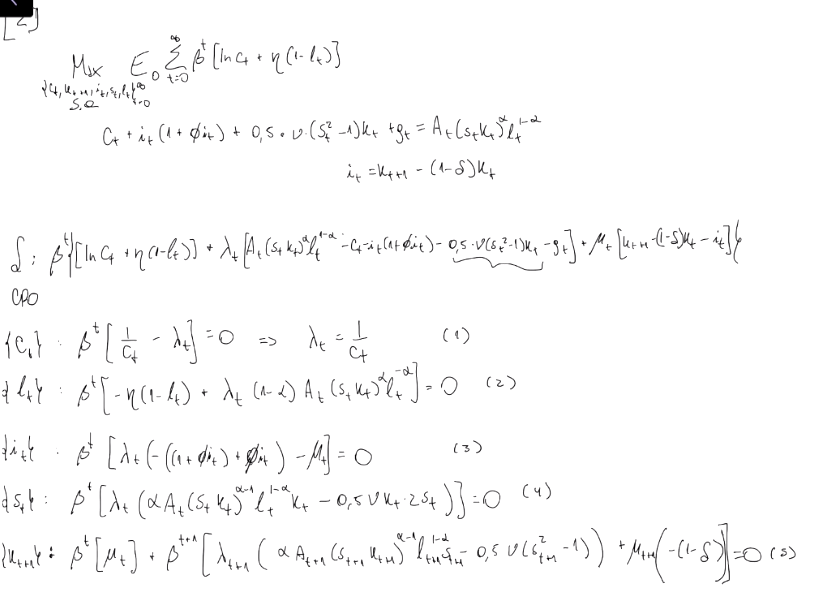 [2]
Max E₀ ∑_{t=0}^{∞} β^t [ln c_t + η(1-l_t)]
{c_t, k_{t+1}, i_t, s_t, l_t}_{t=0}^{∞}
s.a
c_t + i_t(1+ϕi_t) + 0,5·ν·(s_t²-1)k_t + g_t = A_t(s_t k_t)^α l_t^{1-α}
i_t = k_{t+1} - (1-δ)k_t
L: β^t{[ln c_t + η(1-l_t)] + λ_t[A_t(s_t k_t)^α l_t^{1-α} - c_t - i_t(1+ϕi_t) - 0,5·ν(s_t²-1)k_t - g_t] + μ_t[k_{t+1} - (1-δ)k_t - i_t]}
CPO
{c_t}: β^t[1/c_t - λ_t] = 0 => λ_t = 1/c_t (1)
{l_t}: β^t[-η(1-l_t) + λ_t(1-α)A_t(s_t k_t)^α l_t^{-α}] = 0 (2)
{i_t}: β^t[λ_t(-((1+ϕi_t)+ϕi_t) - μ_t] = 0 (3)
{s_t}: β^t[λ_t(αA_t(s_t k_t)^{α-1} l_t^{1-α} k_t - 0,5νk_t·2s_t)] = 0 (4)
{k_{t+1}}: β^t[μ_t] + β^{t+1}[λ_{t+1}(αA_{t+1}(s_{t+1} k_{t+1})^{α-1} l_{t+1}^{1-α} s_{t+1} - 0,5ν(s_{t+1}²-1)) + μ_{t+1}(-(1-δ))] = 0 (5)